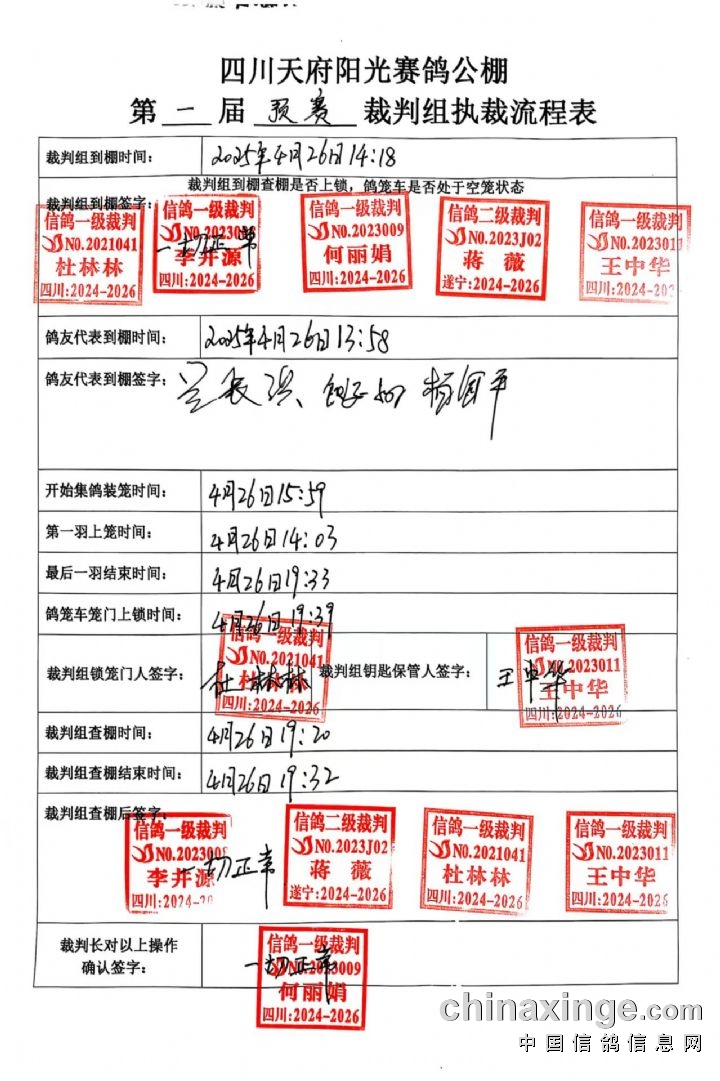 四川天府阳光赛鸽公棚
第 一 届 预赛 裁判组执裁流程表
裁判组到棚时间： 2025年4月26日14:18
裁判组到棚查棚是否上锁，鸽笼车是否处于空笼状态
裁判组到棚签字：
信鸽一级裁判 信鸽一级裁判 信鸽一级裁判 信鸽二级裁判 信鸽一级裁判
NO.2021041 NO.2023008 一切正常 NO.2023009 NO.2023J02 NO.2023011
杜林林 李井源 何丽娟 蒋薇 王中华
四川:2024-2026 四川:2024-2026 四川:2024-2026 遂宁:2024-2026 四川:2024-202
鸽友代表到棚时间： 2025年4月26日13:58
鸽友代表到棚签字：
开始集鸽装笼时间： 4月26日15:59
第一羽上笼时间： 4月26日14:03
最后一羽结束时间： 4月26日19:33
鸽笼车笼门上锁时间： 4月26日19:39
裁判组锁笼门人签字： 杜林林 裁判组钥匙保管人签字： 王中华
信鸽一级裁判 信鸽一级裁判
NO.2021041 NO.2023011
杜林林 王中华
四川:2024-2026 四川:2024-2026
裁判组查棚时间： 4月26日19:20
裁判组查棚结束时间： 4月26日19:32
裁判组查棚后签字：
信鸽一级裁判 信鸽二级裁判 信鸽一级裁判 信鸽一级裁判
NO.2023008 NO.2023J02 NO.2021041 NO.2023011
李井源 一切正常 蒋薇 杜林林 王中华
四川:2024-20 遂宁:2024-2026 四川:2024-2026 四川:2024-2026
裁判长对以上操作
确认签字：
信鸽一级裁判
一切正常 NO.2023009
何丽娟
四川:2024-2026
chinaxinge.com
中国信鸽信息网